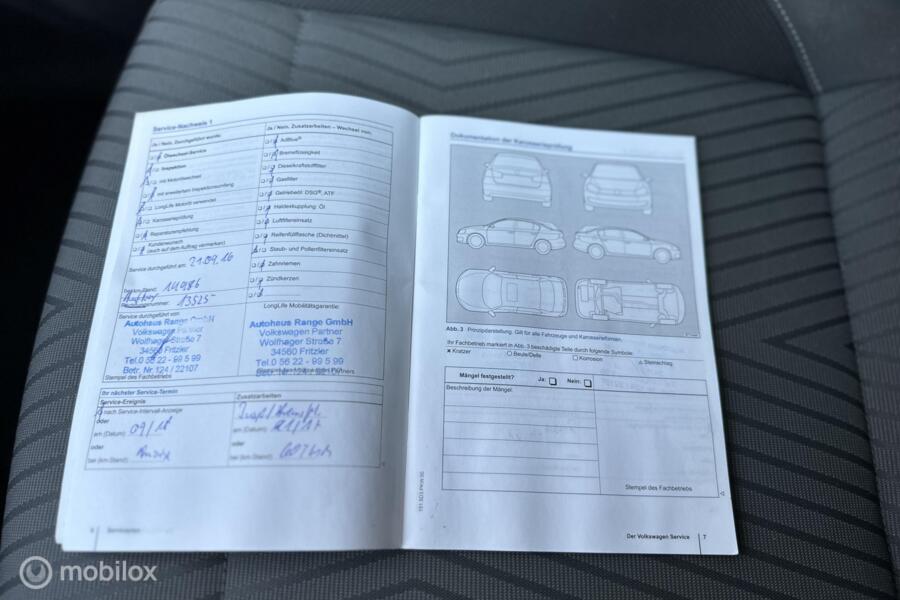 Service-Nachweis 1
Ja / Nein, Durchgeführt wurde:
Ölwechsel-Service
Inspektion
mit Motorölwechsel
mit erweitertem Inspektionsumfang
LongLife Motoröl verwendet
Karosserieprüfung
Reparaturempfehlung
Kundenwunsch
(auch auf dem Auftrag vermerken)
Service durchgeführt am: 21.09.16
bei km-Stand:
nummer: 13525
Service durchgeführt von:
Autohaus Range GmbH
Volkswagen Partner
Wolfhager Straße 7
34560 Fritzlar
Tel.0 56 22 - 99 5 99
Betr. Nr.124 / 22107
Stempel des Fachbetriebs
Ja / Nein, Zusatzarbeiten – Wechsel von:
AdBlue®
Bremsflüssigkeit
Dieselkraftstofffilter
Gasfilter
Getriebeöl: DSG®, ATF
Haldexkupplung: Öl
Luftfiltereinsatz
Reifenfüllflasche (Dichtmittel)
Staub- und Pollenfiltereinsatz
Zahnriemen
Zündkerzen
LongLife Mobilitätsgarantie:
Autohaus Range GmbH
Volkswagen Partner
Wolfhager Straße 7
34560 Fritzlar
Tel.0 56 22 - 99 5 99
Ihr nächster Service-Termin
Service-Ereignis
nach Service-Intervall-Anzeige
oder
am (Datum): 09/18
oder
bei (km-Stand):
Zusatzarbeiten
am (Datum):
oder
bei (km-Stand):
6
Dokumentation der Karosserieprüfung
Abb. 3 Prinzipdarstellung. Gilt für alle Fahrzeuge und Karosserieformen.
Ihr Fachbetrieb markiert in Abb. 3 beschädigte Teile durch folgende Symbole:
× Kratzer ○ Beule/Delle □ Korrosion △ Steinschlag
Mängel festgestellt? Ja: Nein:
Beschreibung der Mängel:
Stempel des Fachbetriebs
Der Volkswagen Service 7
mobilox